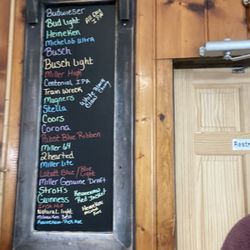 Budweiser
Bud light
Heineken
Michelob Ultra
Busch
Busch light
Miller High
Centennial IPA
Train Wreck
Magners
Stella
Coors
Corona
Pabst Blue Ribbon
Miller 64
2 hearted
Miller lite
Labatt Blue/Blue Light
Miller Genuine Draft
Stroh's
Guinness
Natural light
All Day IPA
White Claw
Restr